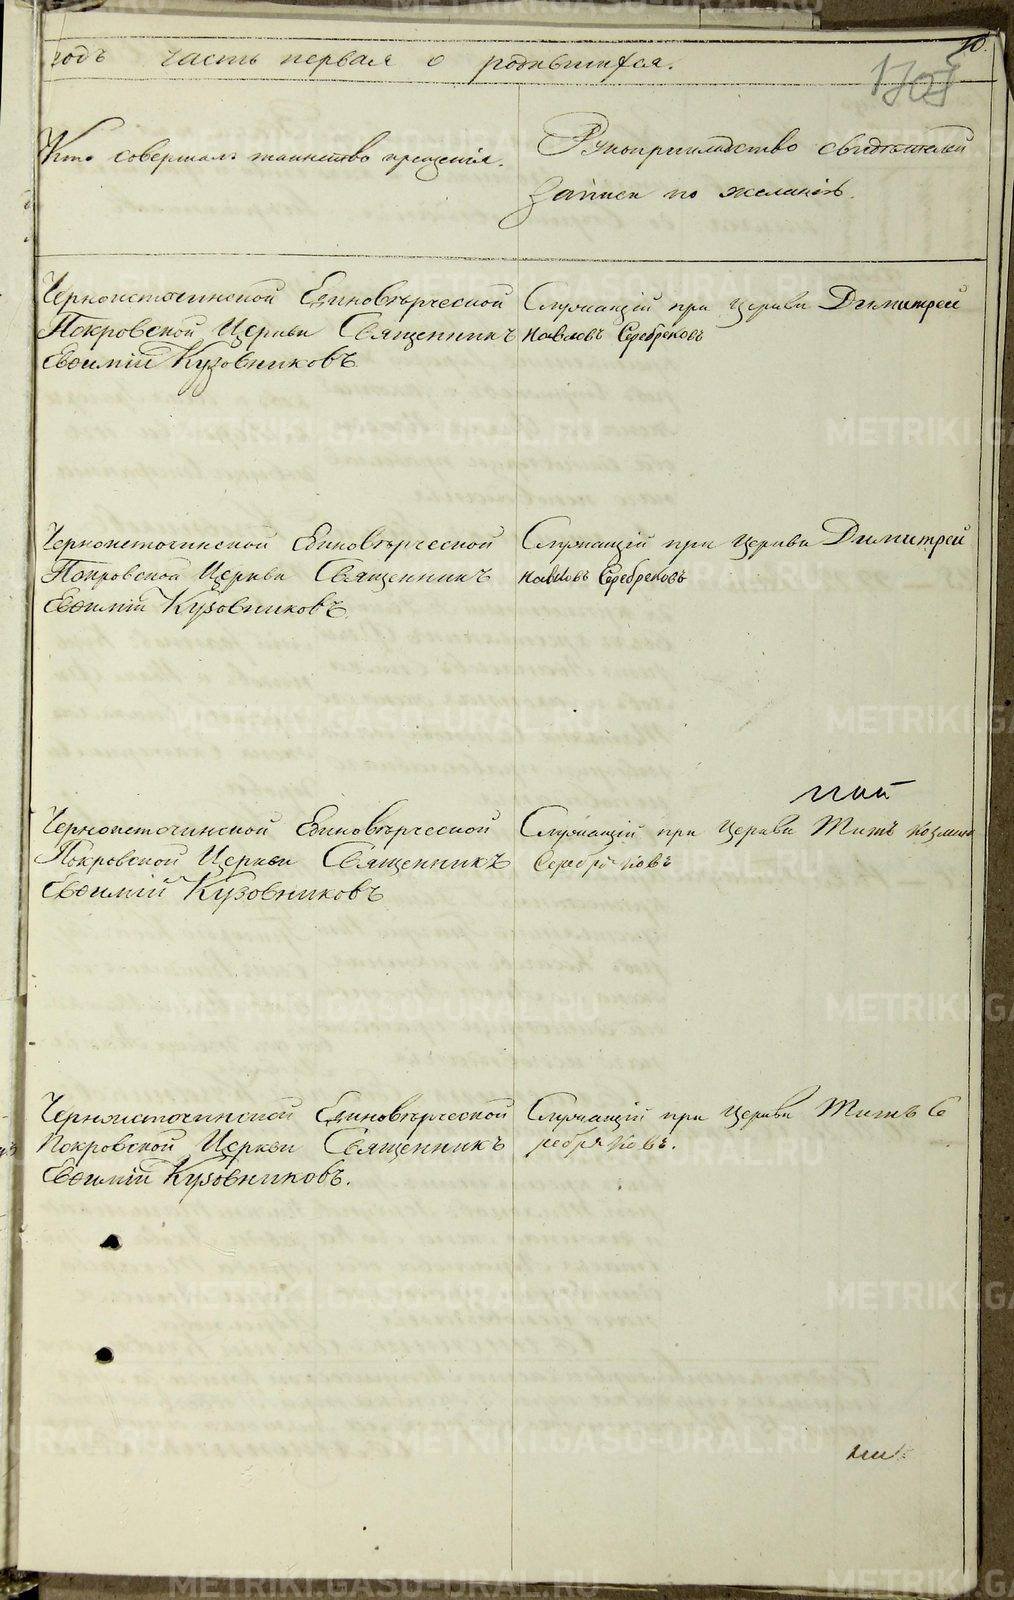 годъ часть первая о родившихся.
10.
Кто совершалъ таинство крещенія.
Рукоприкладство свидѣтелей
записи по желанію.
Черноисточинской Единовѣрческой
Покровской Церкви Священникъ
Евѳимій Кузовниковъ
Служащій при Церкви Димитрей
Павловъ Серебрековъ
Черноисточинской Единовѣрческой
Покровской Церкви Священникъ
Евѳимій Кузовниковъ.
Служащій при Церкви Димитрей
Павловъ Серебрековъ
Черноисточинской Единовѣрческой
Покровской Церкви Священникъ
Евѳимій Кузовниковъ
Служащій при Церкви Титъ Козмин
Серебряковъ
Черноисточинской Единовѣрческой
Покровской Церкви Священникъ
Евѳимій Кузовниковъ.
Служащій при Церкви Титъ Се
ребряковъ.
METRIKI.GASO-URAL.RU